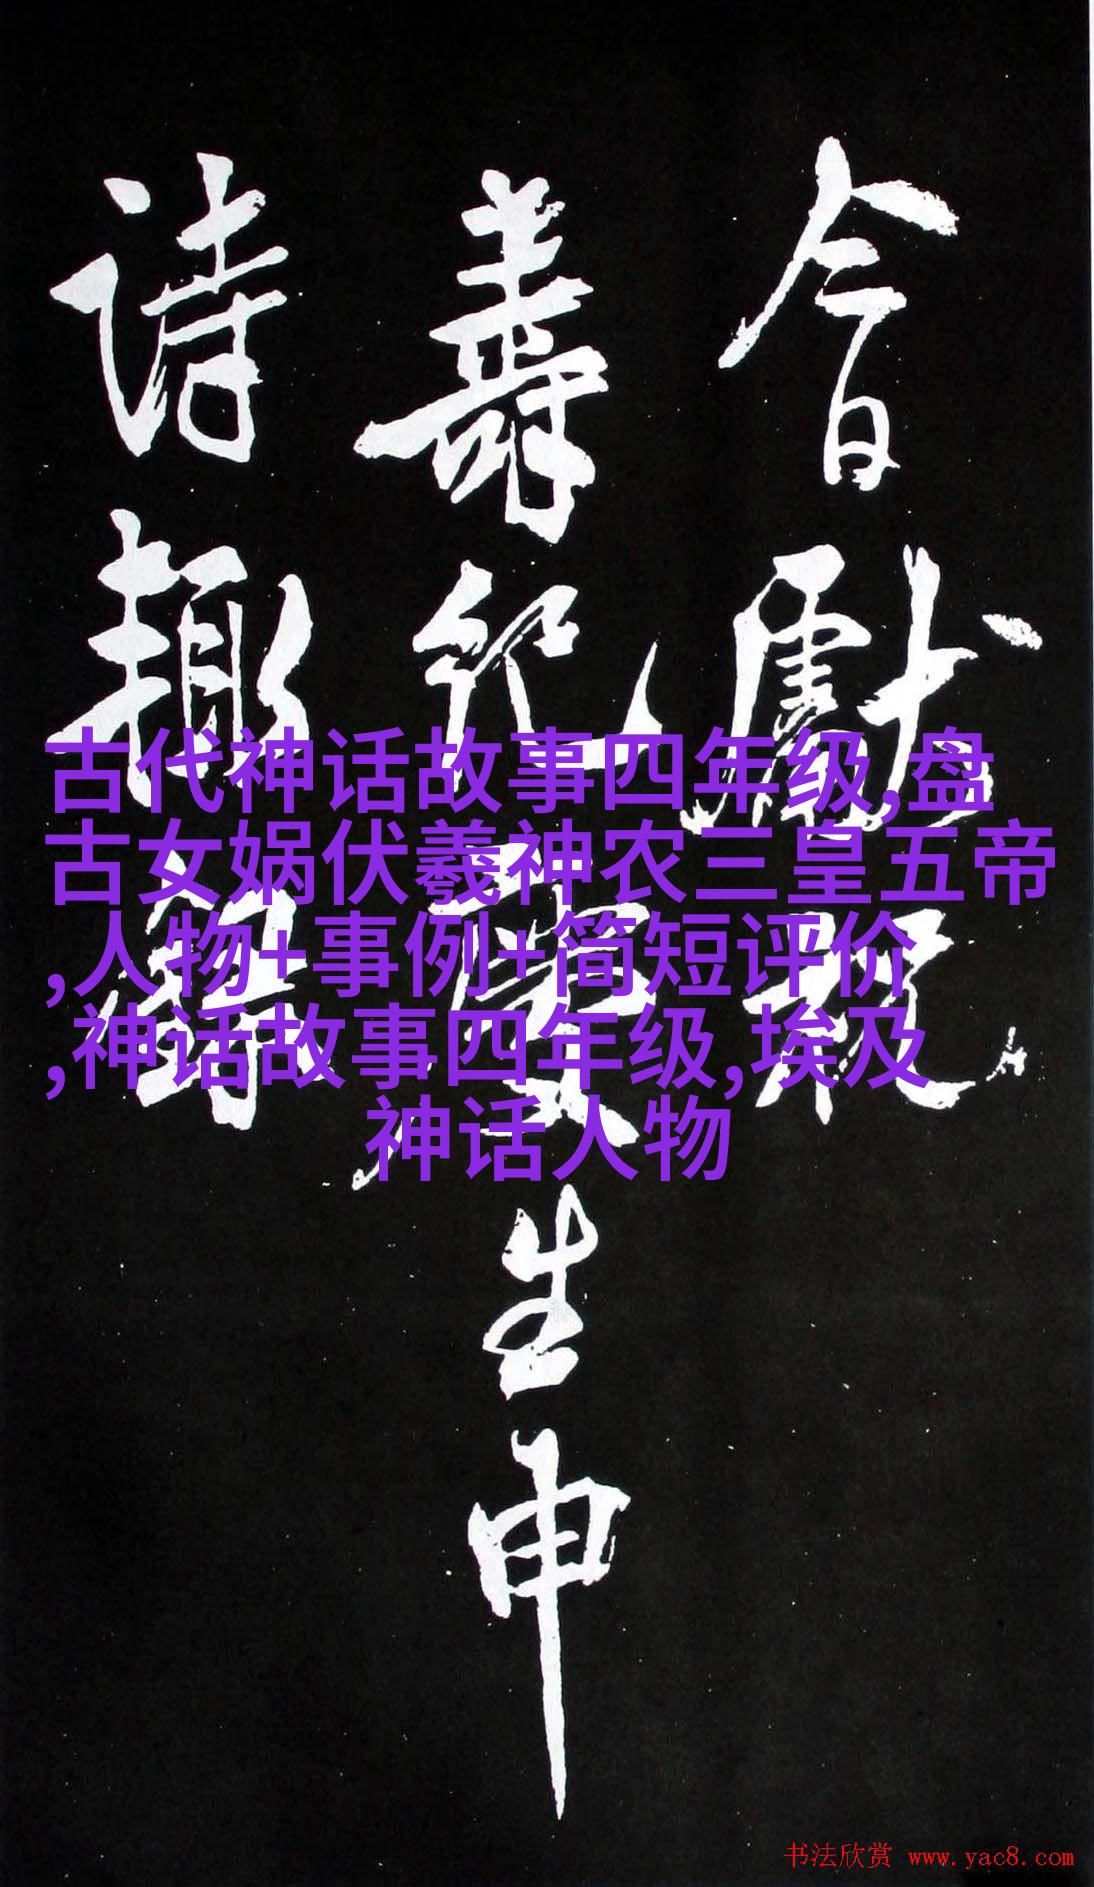 今日獻祝
壽慶生申
詩
古代神话故事四年级,盘
古女娲伏羲神农三皇五帝
,人物+事例+简短评价
,神话故事四年级,埃及
神话人物
书法欣赏 www.yac8.com